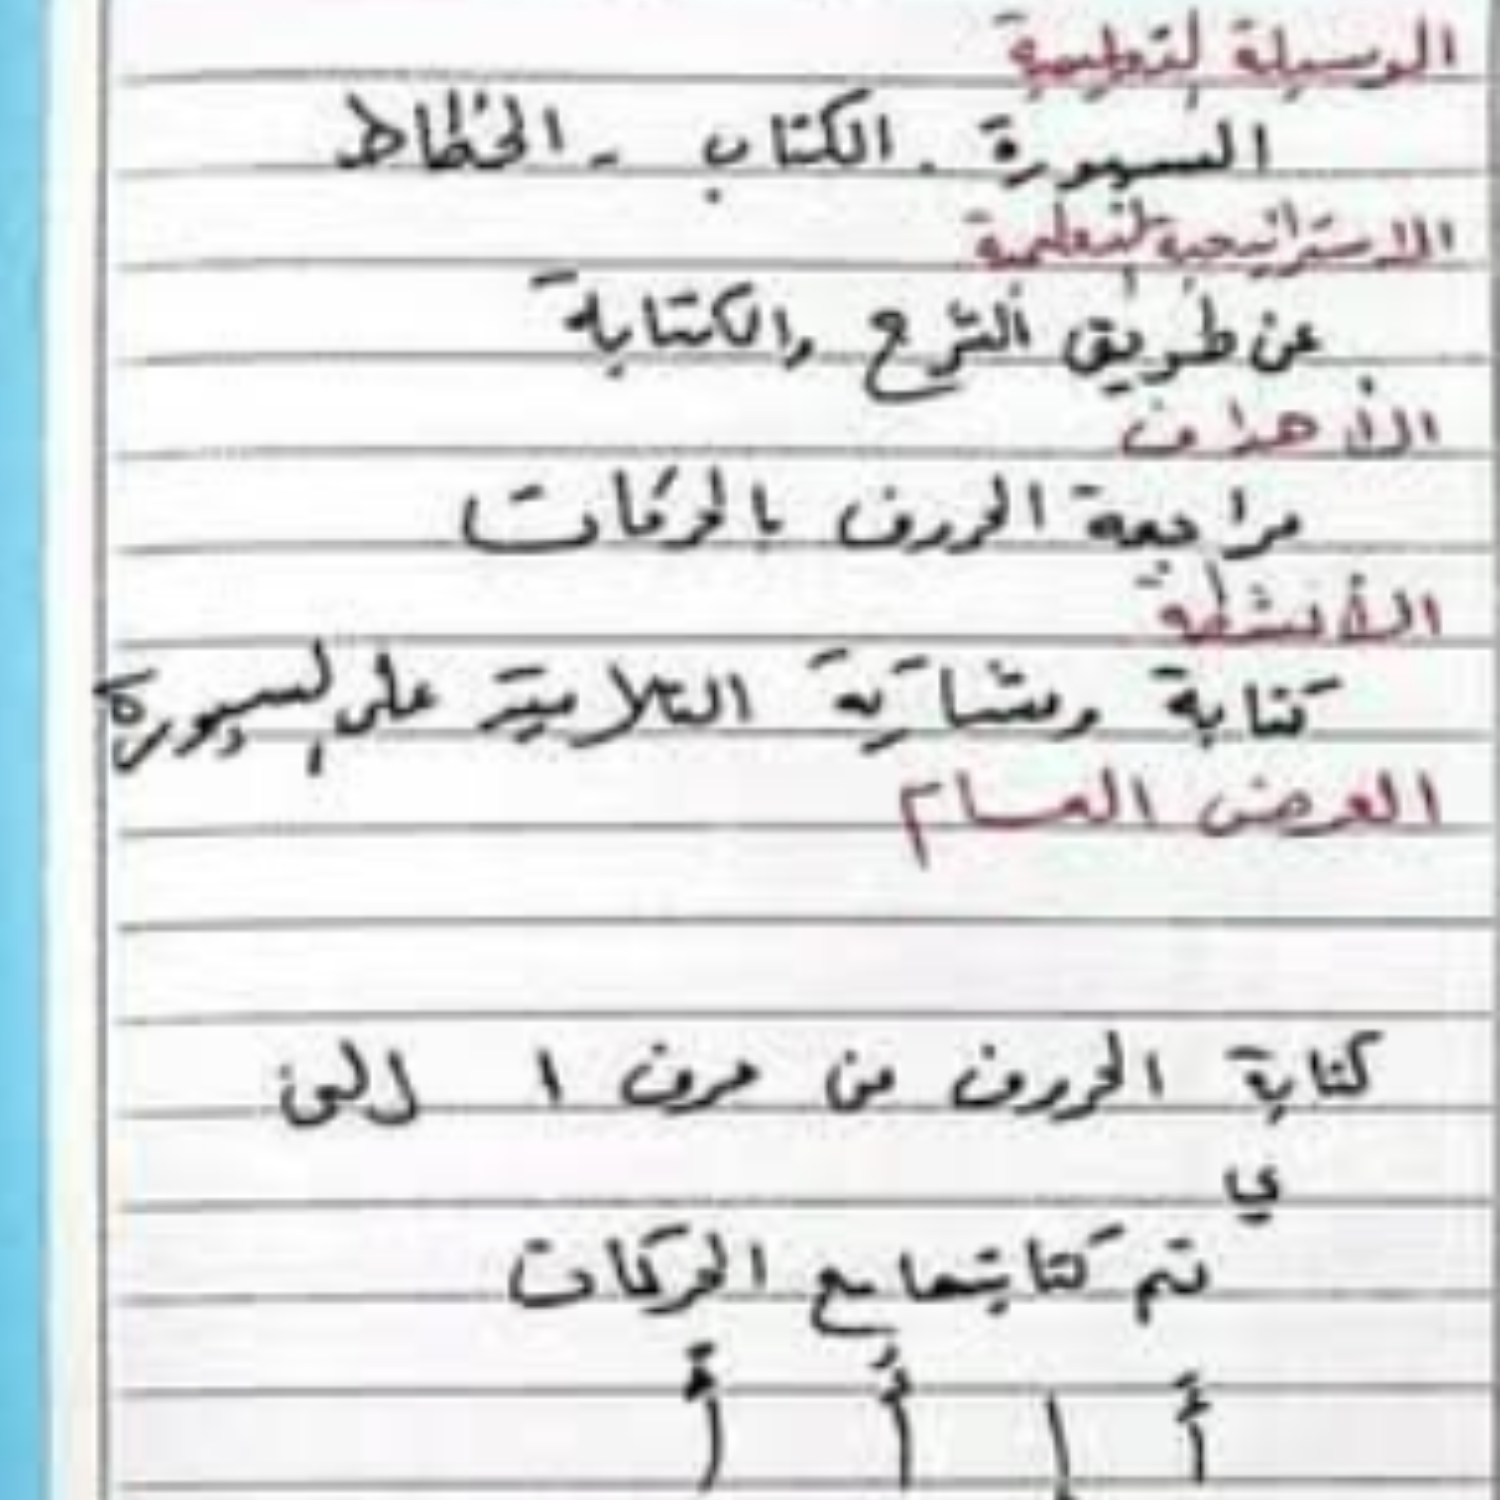 الوسيلة لتعليمية
السبورة - الكتاب - الخطاط
الاستراتيجية لتعليمية
عن طريق الشرح والكتابة
الأهداف
مراجعة الحروف بالحركات
الأنشطة
كتابة ومشاركة التلاميذ على لسبورة
العرض العام
كتابة الحروف من حرف ا إلى
ي
تم كتابتها مع الحركات
أَ إ أُ أْ